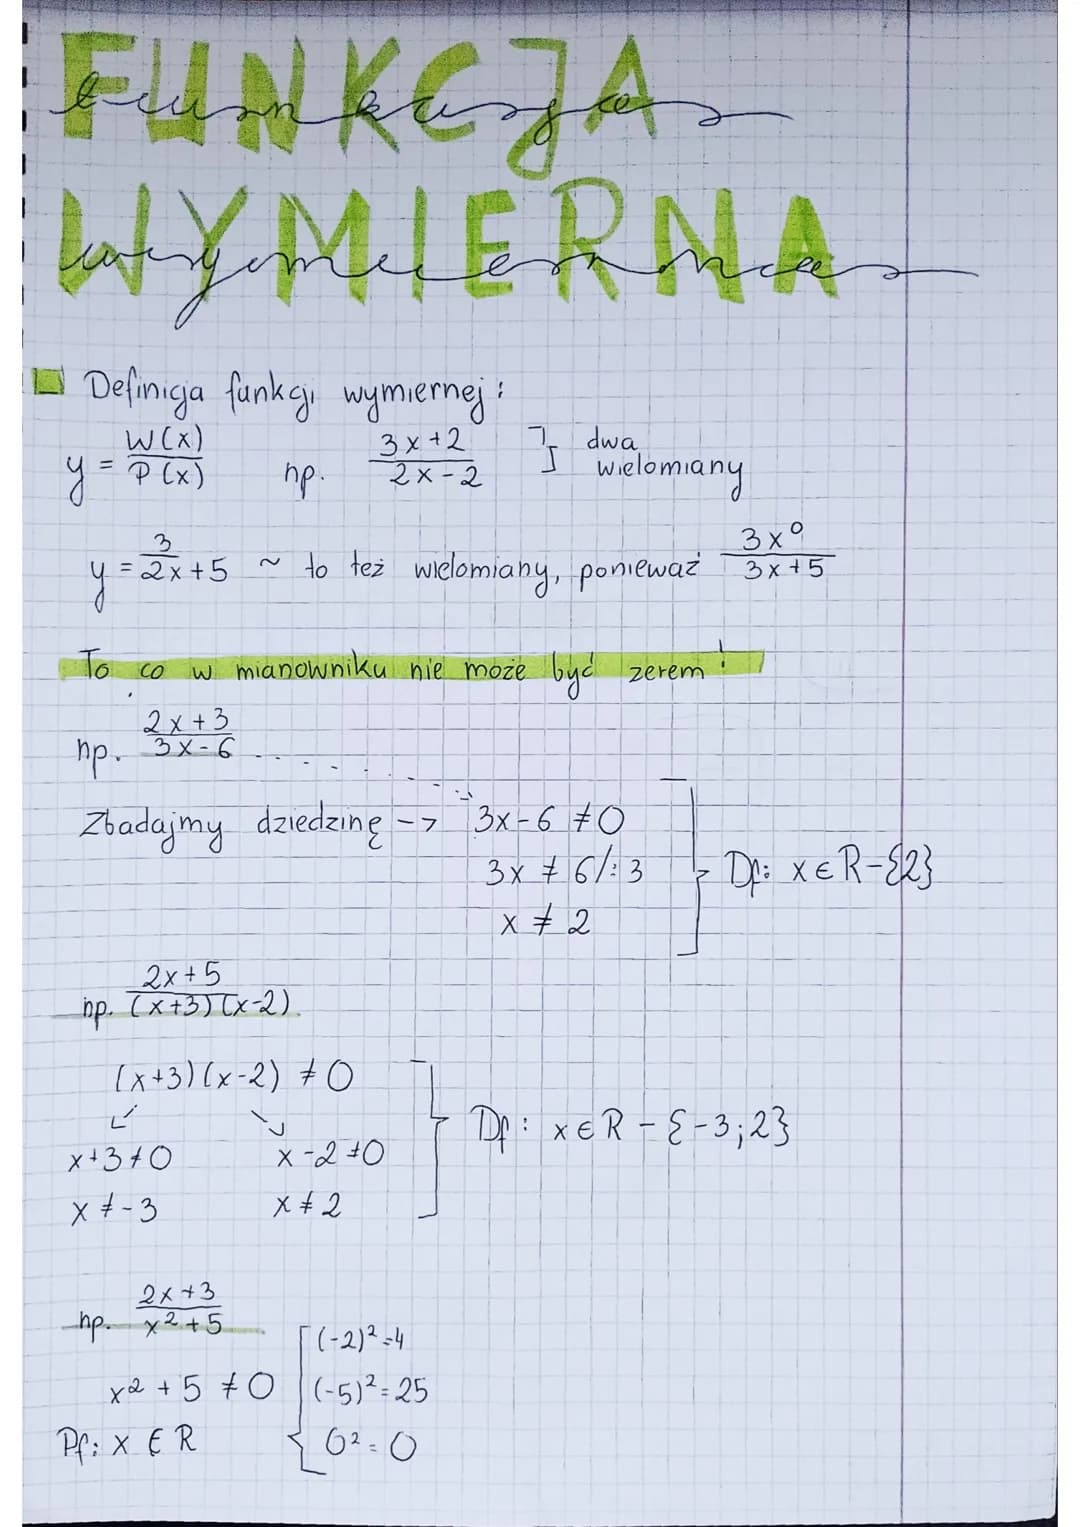 FUNKCJA
funkcja
WYMIERNA
wymierna
Definicja funkcji wymiernej:
y = W(x)/P(x) np. (3x+2)/(2x-2) ] dwa wielomiany
y = 3/(2x+5) ~ to też wielomiany, ponieważ 3x⁰/(3x+5)
To co w mianowniku nie może być zerem!
np. (2x+3)/(3x-6)
Zbadajmy dziedzinę --> 3x-6 ≠ 0
3x ≠ 6/:3
x ≠ 2
Df: x ∈ R-{2}
np. (2x+5)/((x+3)(x-2))
(x+3)(x-2) ≠ 0
x+3≠0 x-2≠0
x ≠ -3 x ≠ 2
Df: x ∈ R - {-3;2}
np. (2x+3)/(x²+5)
(-2)²=4
x² + 5 ≠ 0 (-5)²=25
Df: x ∈ R 0²=0